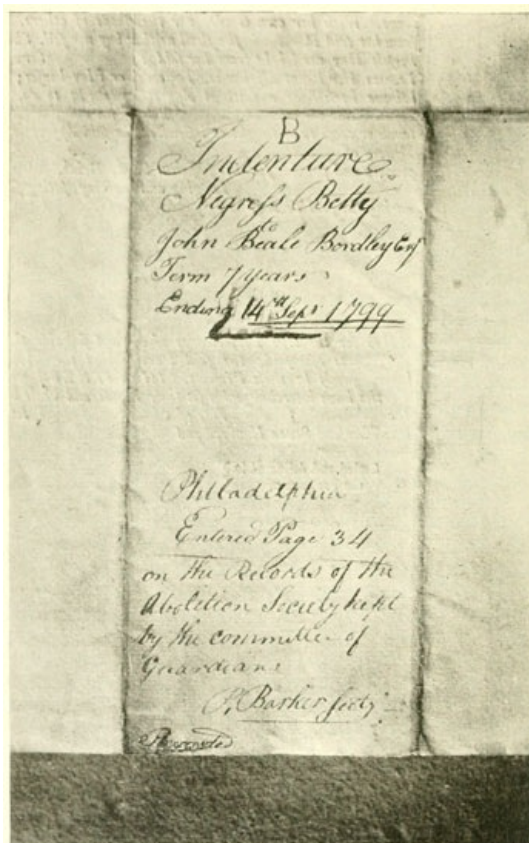 B
Indenture
Negress Betty
to
John Beale Bordley Esq
Term 7 years
Ending 14th Sepr 1799
Philladelphia
Entered Page 34
on the Records of the
Abolition Society kept
by the committee of
Guardians
P. Barker Secty